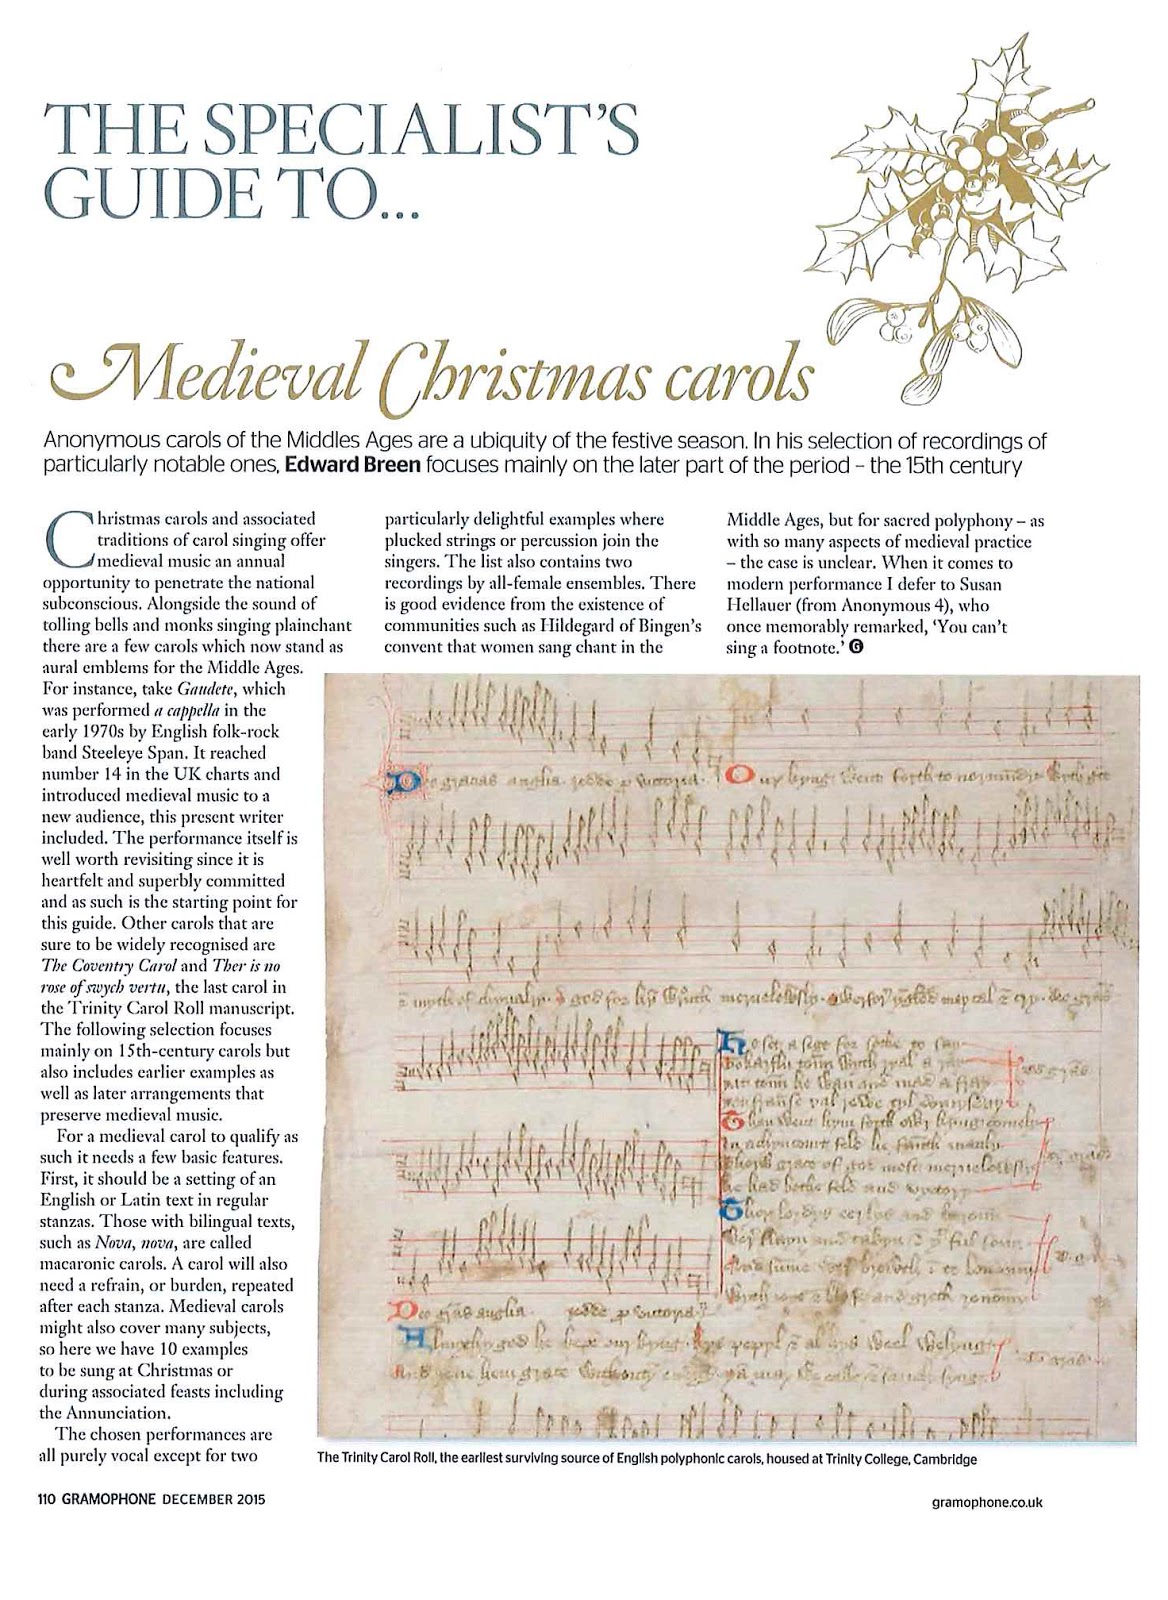 THE SPECIALIST'S
GUIDE TO...
Medieval Christmas carols
Anonymous carols of the Middles Ages are a ubiquity of the festive season. In his selection of recordings of
particularly notable ones, Edward Breen focuses mainly on the later part of the period – the 15th century
Christmas carols and associated
traditions of carol singing offer
medieval music an annual
opportunity to penetrate the national
subconscious. Alongside the sound of
tolling bells and monks singing plainchant
there are a few carols which now stand as
aural emblems for the Middle Ages.
For instance, take Gaudete, which
was performed a cappella in the
early 1970s by English folk-rock
band Steeleye Span. It reached
number 14 in the UK charts and
introduced medieval music to a
new audience, this present writer
included. The performance itself is
well worth revisiting since it is
heartfelt and superbly committed
and as such is the starting point for
this guide. Other carols that are
sure to be widely recognised are
The Coventry Carol and Ther is no
rose of swych vertu, the last carol in
the Trinity Carol Roll manuscript.
The following selection focuses
mainly on 15th-century carols but
also includes earlier examples as
well as later arrangements that
preserve medieval music.
For a medieval carol to qualify as
such it needs a few basic features.
First, it should be a setting of an
English or Latin text in regular
stanzas. Those with bilingual texts,
such as Nova, nova, are called
macaronic carols. A carol will also
need a refrain, or burden, repeated
after each stanza. Medieval carols
might also cover many subjects,
so here we have 10 examples
to be sung at Christmas or
during associated feasts including
the Annunciation.
The chosen performances are
all purely vocal except for two
particularly delightful examples where
plucked strings or percussion join the
singers. The list also contains two
recordings by all-female ensembles. There
is good evidence from the existence of
communities such as Hildegard of Bingen's
convent that women sang chant in the
Middle Ages, but for sacred polyphony – as
with so many aspects of medieval practice
– the case is unclear. When it comes to
modern performance I defer to Susan
Hellauer (from Anonymous 4), who
once memorably remarked, 'You can't
sing a footnote.' G
The Trinity Carol Roll, the earliest surviving source of English polyphonic carols, housed at Trinity College, Cambridge
110 GRAMOPHONE DECEMBER 2015
gramophone.co.uk